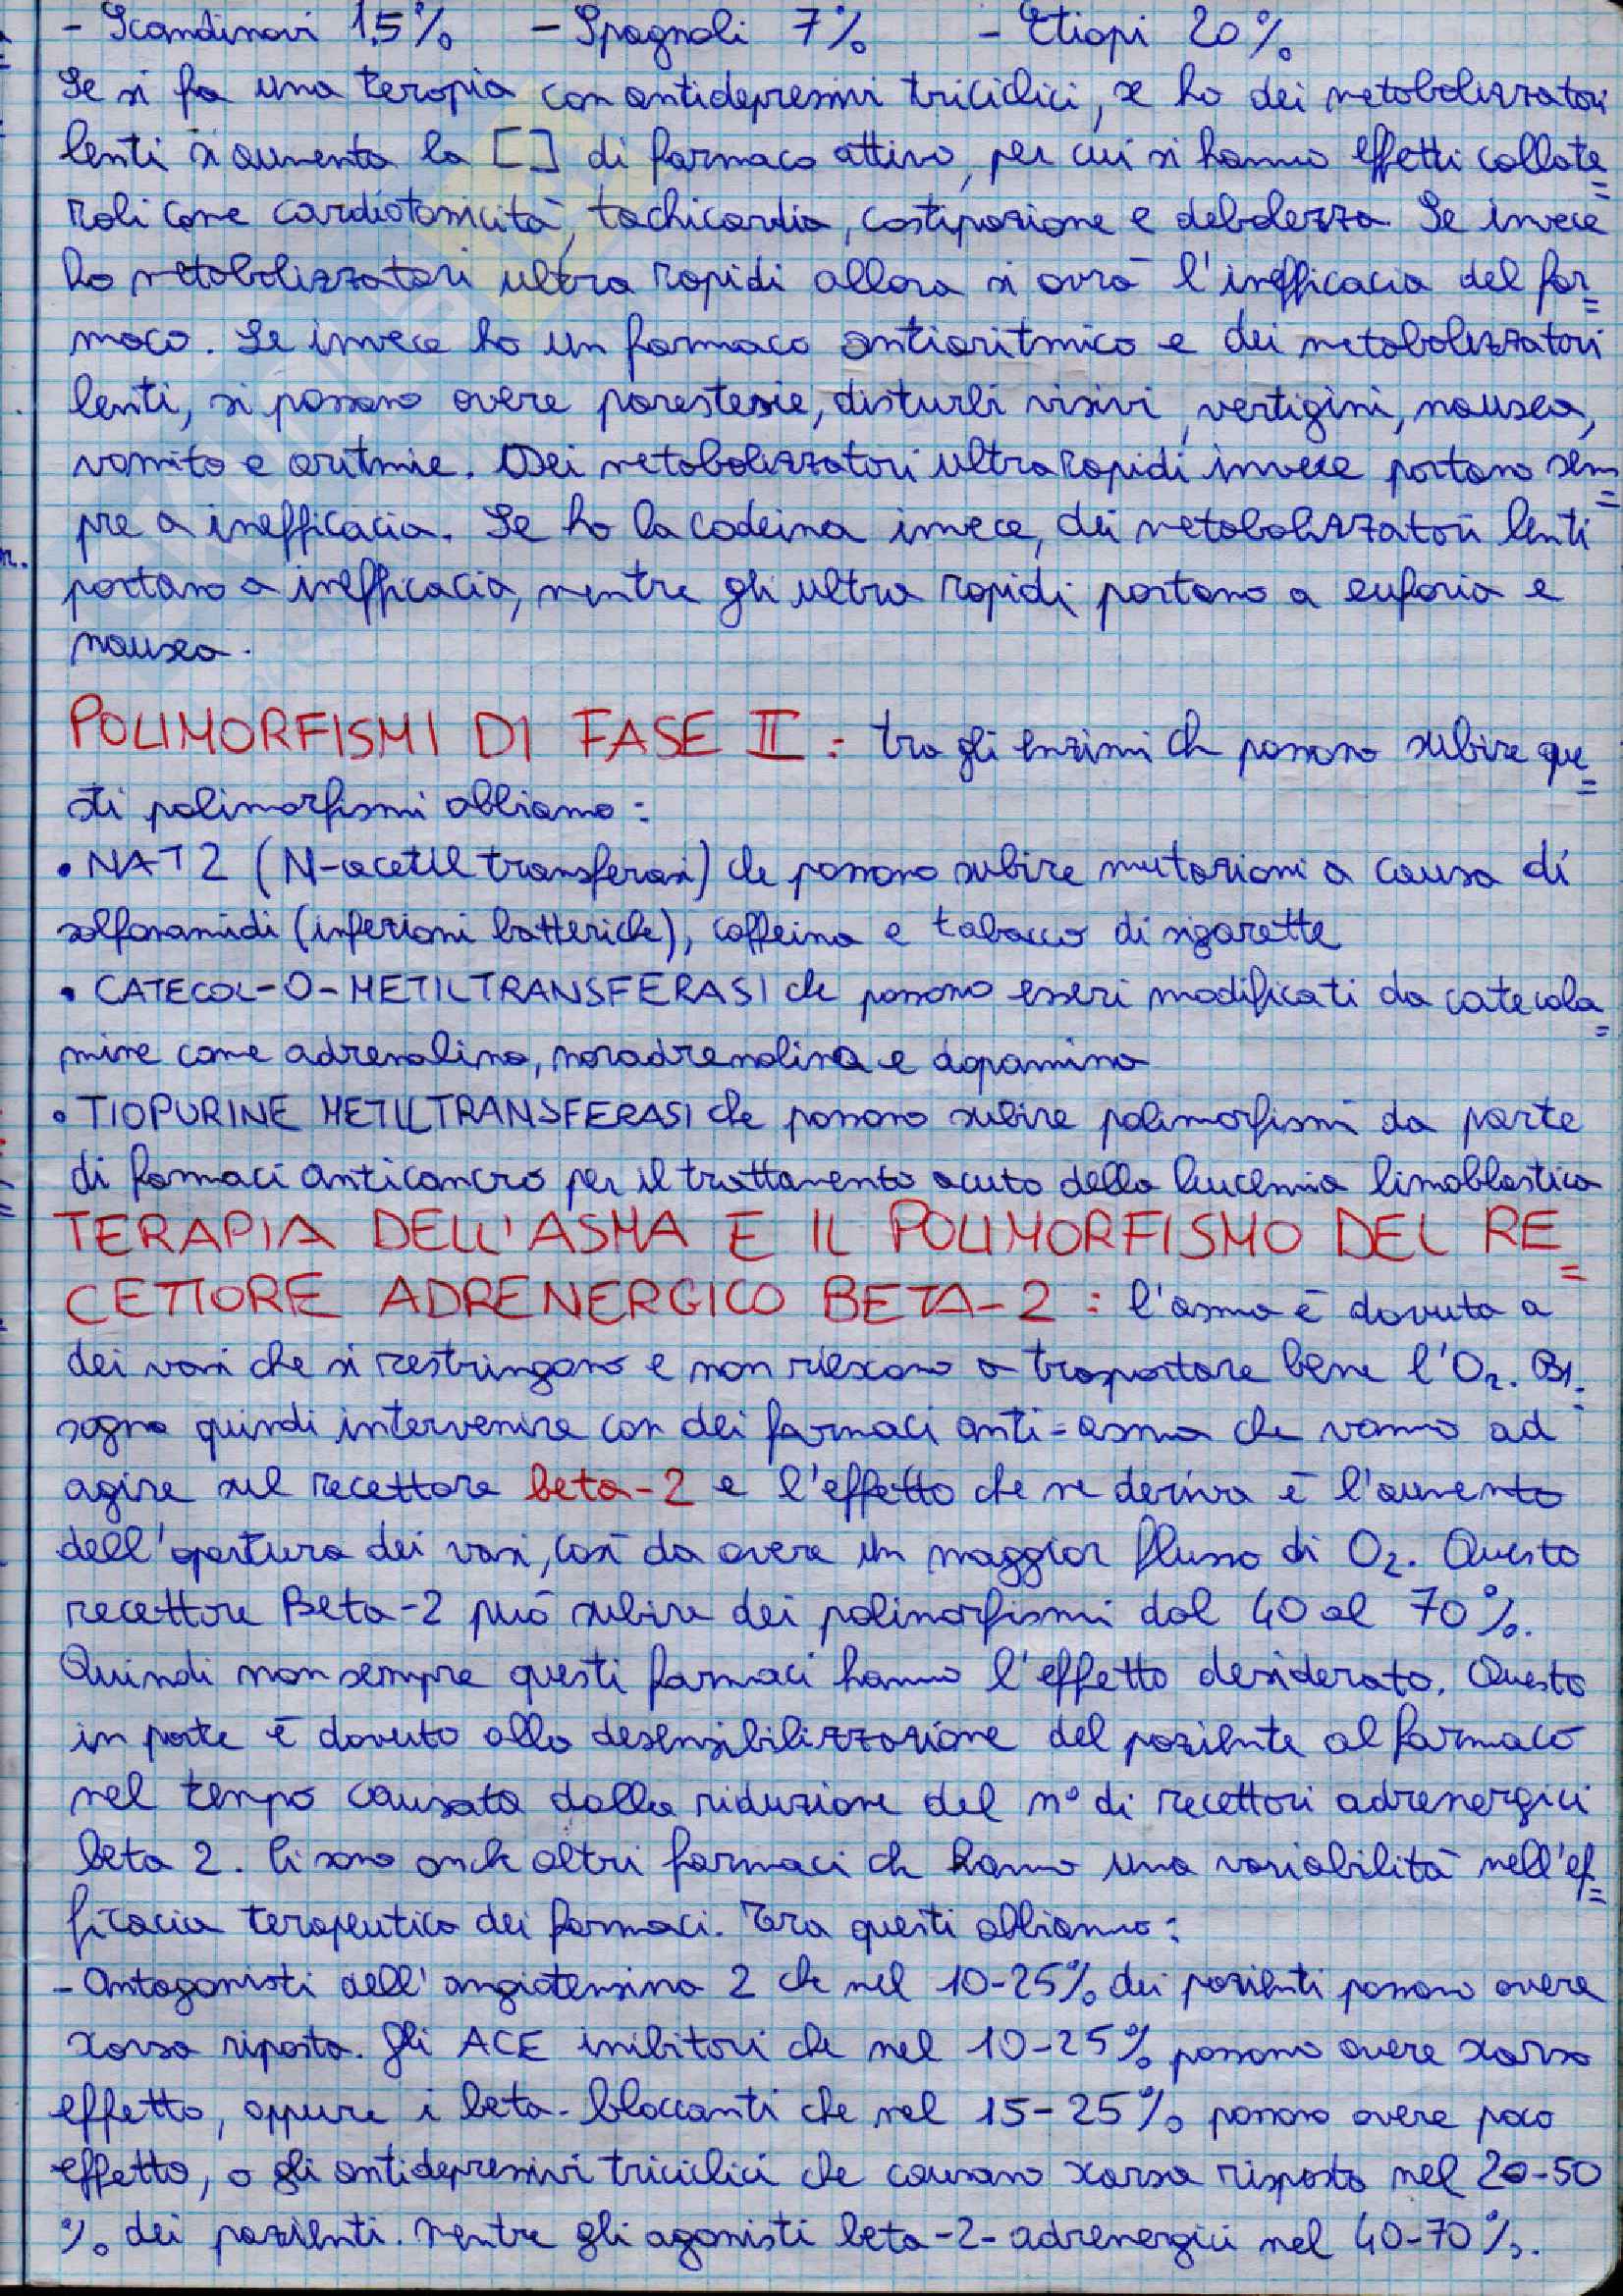 - Scandinavi 1,5% - Spagnoli 7% - Etiopi 20%
Se si fa una terapia con antidepressivi triciclici, se ho dei metabolizzatori
lenti si aumenta la [ ] di farmaco attivo, per cui si hanno effetti collate=
rali come cardiotossicità, tachicardia, costipazione e debolezza. Se invece
ho metabolizzatori ultra rapidi allora si avrà l'inefficacia del far=
maco. Se invece ho un farmaco antiaritmico e dei metabolizzatori
lenti, si possono avere parestesie, disturbi visivi, vertigini, nausea,
vomito e aritmie. Dei metabolizzatori ultra rapidi invece portano sem=
pre a inefficacia. Se ho la codeina invece, dei metabolizzatori lenti
portano a inefficacia, mentre gli ultra rapidi portano a euforia e
nausea.
POLIMORFISMI DI FASE II: tra gli enzimi ch possono subire que=
sti polimorfismi abbiamo:
• NAT2 (N-acetil transferasi) che possono subire mutazioni a causa di
solfonamidi (infezioni batteriche), caffeina e tabacco di sigarette
• CATECOL-O-METILTRANSFERASI che possono esseri modificati da catecola=
mine come adrenalina, noradrenalina e dopamina
• TIOPURINE METILTRANSFERASI che possono subire polimorfismi da parte
di farmaci anticancro per il trattamento acuto della leucemia limoblastica
TERAPIA DELL'ASMA E IL POLIMORFISMO DEL RE=
CETTORE ADRENERGICO BETA-2: l'asma è dovuta a
dei vasi che si restringono e non riescono a trasportare bene l'O2. Bi=
sogna quindi intervenire con dei farmaci anti-asma che vanno ad
agire sul recettore beta-2 e l'effetto che ne deriva è l'aumento
dell'apertura dei vasi, così da avere un maggior flusso di O2. Questo
recettore Beta-2 può subire dei polimorfismi dal 40 al 70%.
Quindi non sempre questi farmaci hanno l'effetto desiderato. Questo
in parte è dovuto alla desensibilizzazione del paziente al farmaco
nel tempo causata dalla riduzione del n° di recettori adrenergici
beta 2. Ci sono anch altri farmaci ch hanno una variabilità nell'ef=
ficacia terapeutica dei farmaci. Tra questi abbiamo:
- Antagonisti dell'angiotensina 2 ch nel 10-25% dei pazienti possono avere
scarsa risposta. Gli ACE inibitori che nel 10-25% possono avere scarso
effetto, oppure i beta-bloccanti che nel 15-25% possono avere poco
effetto, o gli antidepressivi triciclici che causano scarsa risposta nel 20-50
% dei pazienti. Mentre gli agonisti beta-2-adrenergici nel 40-70%.